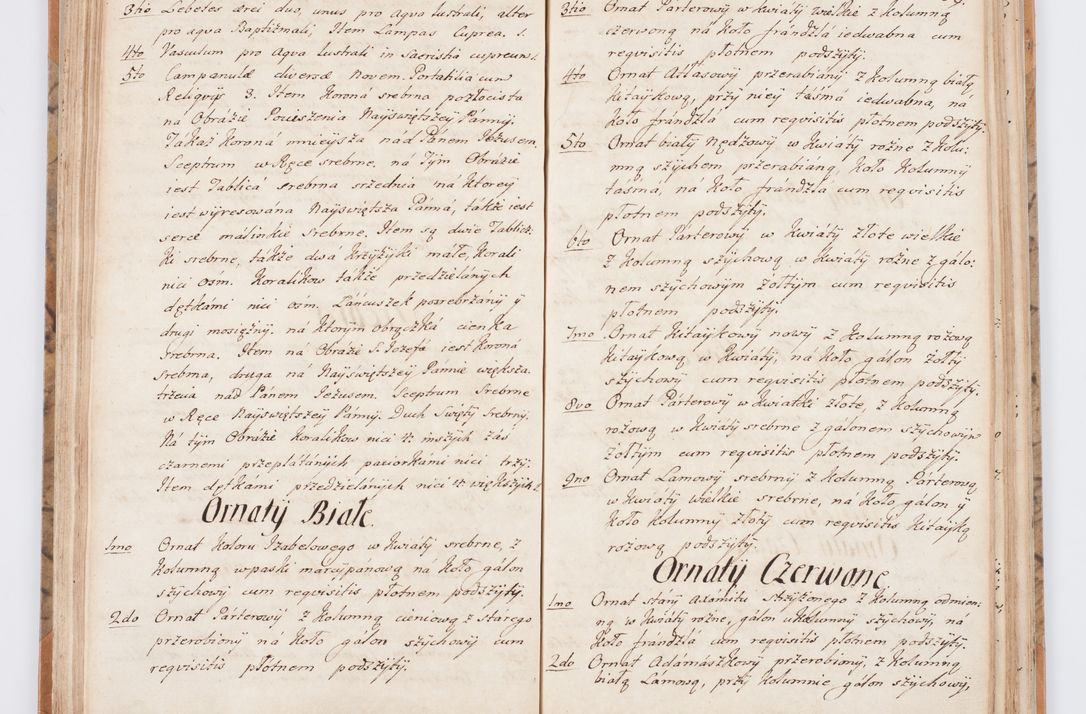 3tio Lebetes ærei duo, unus pro aqva lustrali, alter
pro aqva Baptizmali, Item Lampas Cuprea. 1.
4to Vasculum pro Aqva lustrali in Sacristia cupreum 1.
5to Campanulæ diversæ Novem. Portatilia cum
Religvijs 3. Item Koroná srebrna pozłocista
ná Obráźie Poćieszenia Nayświętszey Pánny.
Tákaż Koroná mnieysza nád Pánem Jezusem,
Sceptrum w Ręce srebrne, ná tym Obráźie
iest Tablicá srebrna srzednia ná ktorey
iest wyresowána Nayświętsza Pánná, tákże iest
serce máłinkie srebrne. Item są dwie Tablicz:
ki srebrne, tákże dwá krzyżyki máłe, Korali
nici osm. Koralikow tákże przedzieláných
dętkámi nici osm. Láncuszek posrebrzány y
drugi mosiężny, ná ktorym obrączká cienka
srebrna. Item ná Obráźie S. Jozefá iest Koroná
srebrna, druga ná Nayświętszey Pánnie większa.
trzecia nád Pánem Jezusem. Sceptrum srebrne
w Ręce Nayświętszey Pánny. Duch Święty srebrny.
Ná tym Obráźie koralikow nici 4. inszych zás
czarnemi przeplátáných paciorkámi nici trzy.
Item dętkámi przedzieláných nici 4 większych
Ornaty Białe.
1mo Ornat Koloru Izabelowego w kwiáty srebrne, z
Kolumną w paski marcypanową ná koło gálon
szychowy cum reqvisitis płotnem podszyty.
2do Ornat Párterowy z Kolumną cieniową z starego
przerobiony ná koło gálon szychowy cum
reqvisitis płotnem podszyty.
3tio Ornat Párterowy w kwiáty wielkie z Kolumną
czerwoną ná koło frándzla iedwabna cum
reqvisitis płotnem podszyty.
4to Ornat Atłasowy przerabiány z Kolumną biały
Kitáykową, przy niey tásmá iedwabna, ná
koło frándzla cum reqvisitis płotnem podszyty.
5to Ornat biały nędzowy w kwiáty rożne z Kolu:
mną szychem przerabianą, koło Kolumny
tásmá, ná koło frándzla cum reqvisitis
płotnem podszyty.
6to Ornat Párterowy w kwiáty złote wielkie
z Kolumną szychową w kwiáty rożne z gálo:
nem szychowym żółtym cum reqvisitis
płotnem podszyty.
7mo Ornat Kitáykowy nowy z Kolumną rożową
Kitáykową w kwiáty, ná koło gálon żółty
szychowy cum reqvisitis płotnem podszyty.
8vo Ornat Párterowy w kwiatki złote, z Kolumną
rożową w kwiáty srebrne z gálonem szychowym
żółtym cum reqvisitis płotnem podszyty.
9no Ornat Lamowy srebrny z Kolumną Párterową
w kwiáty wielkie srebrne, ná koło gálon y
koło Kolumny złoty cum reqvisitis Kitáyką
rożową podszyty.
Ornaty Czerwone
1mo Ornat stáry Axamitu strzyżonego z Kolumną odmien:
ną w kwiáty rożne, gálon u Kolumny szychowy, ná
koło frándzla cum reqvisitis płotnem podszyty.
2do Ornat Adámászkowy przerobiony, z Kolumną
białą Lámową, przy Kolumnie gálon szychowy,